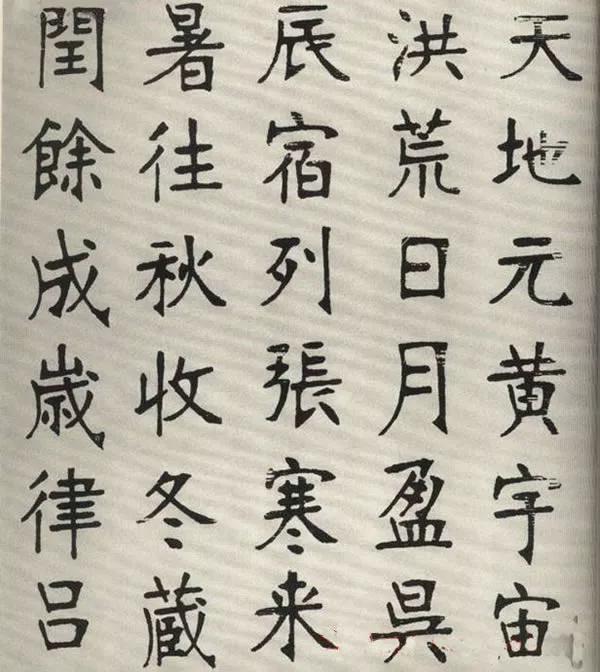 天地元黄宇宙
洪荒日月盈呉
辰宿列張寒来
暑往秋收冬蔵
閏餘成歳律吕